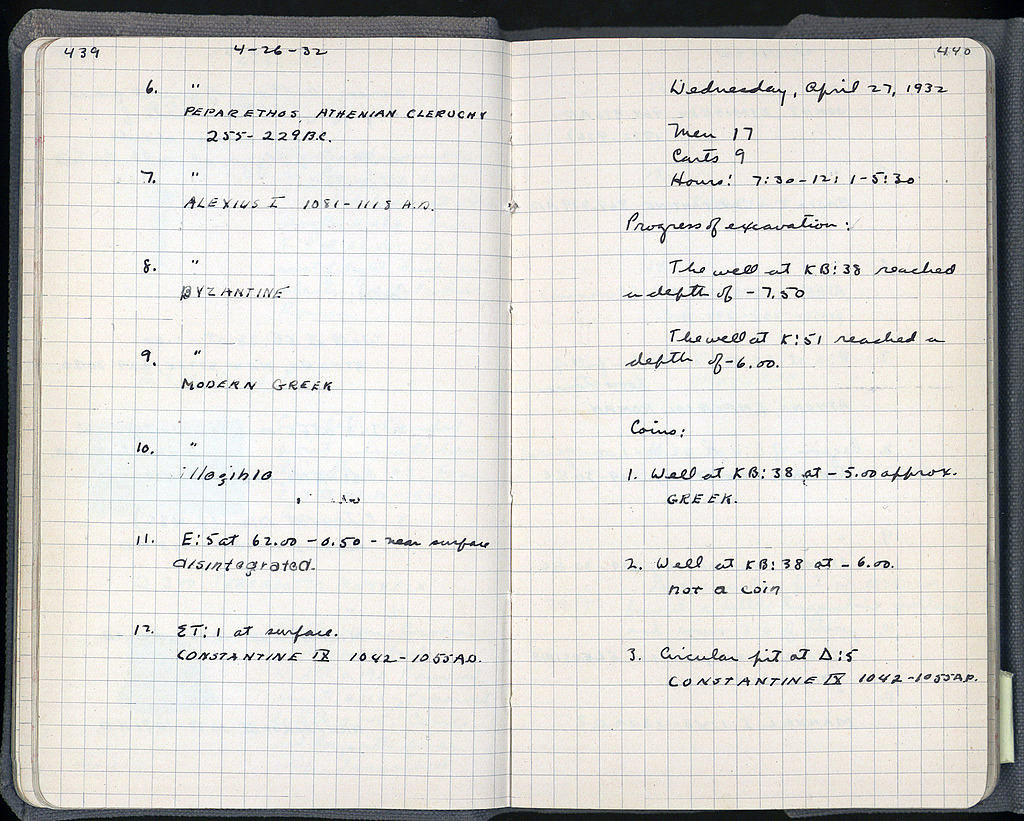 439
4-26-32
6. "
PEPARETHOS, ATHENIAN CLERUCHY
255-229 B.C.
7. "
ALEXIUS I 1081-1118 A.D.
8. "
BYZANTINE
9. "
MODERN GREEK
10. "
illegible
11. E:5 at 62.00 -0.50 - near surface
disintegrated.
12. ΣT:1 at surface.
CONSTANTINE IX 1042-1055 A.D.
440
Wednesday, April 27, 1932
Men 17
Carts 9
Hours: 7:30-12; 1-5:30
Progress of excavation:
The well at KB:38 reached
a depth of -7.50
The well at K:51 reached a
depth of -6.00.
Coins:
1. Well at KB:38 at -5.00 approx.
GREEK.
2. Well at KB:38 at -6.00.
not a coin
3. Circular pit at Δ:5
CONSTANTINE IX 1042-1055 A.D.